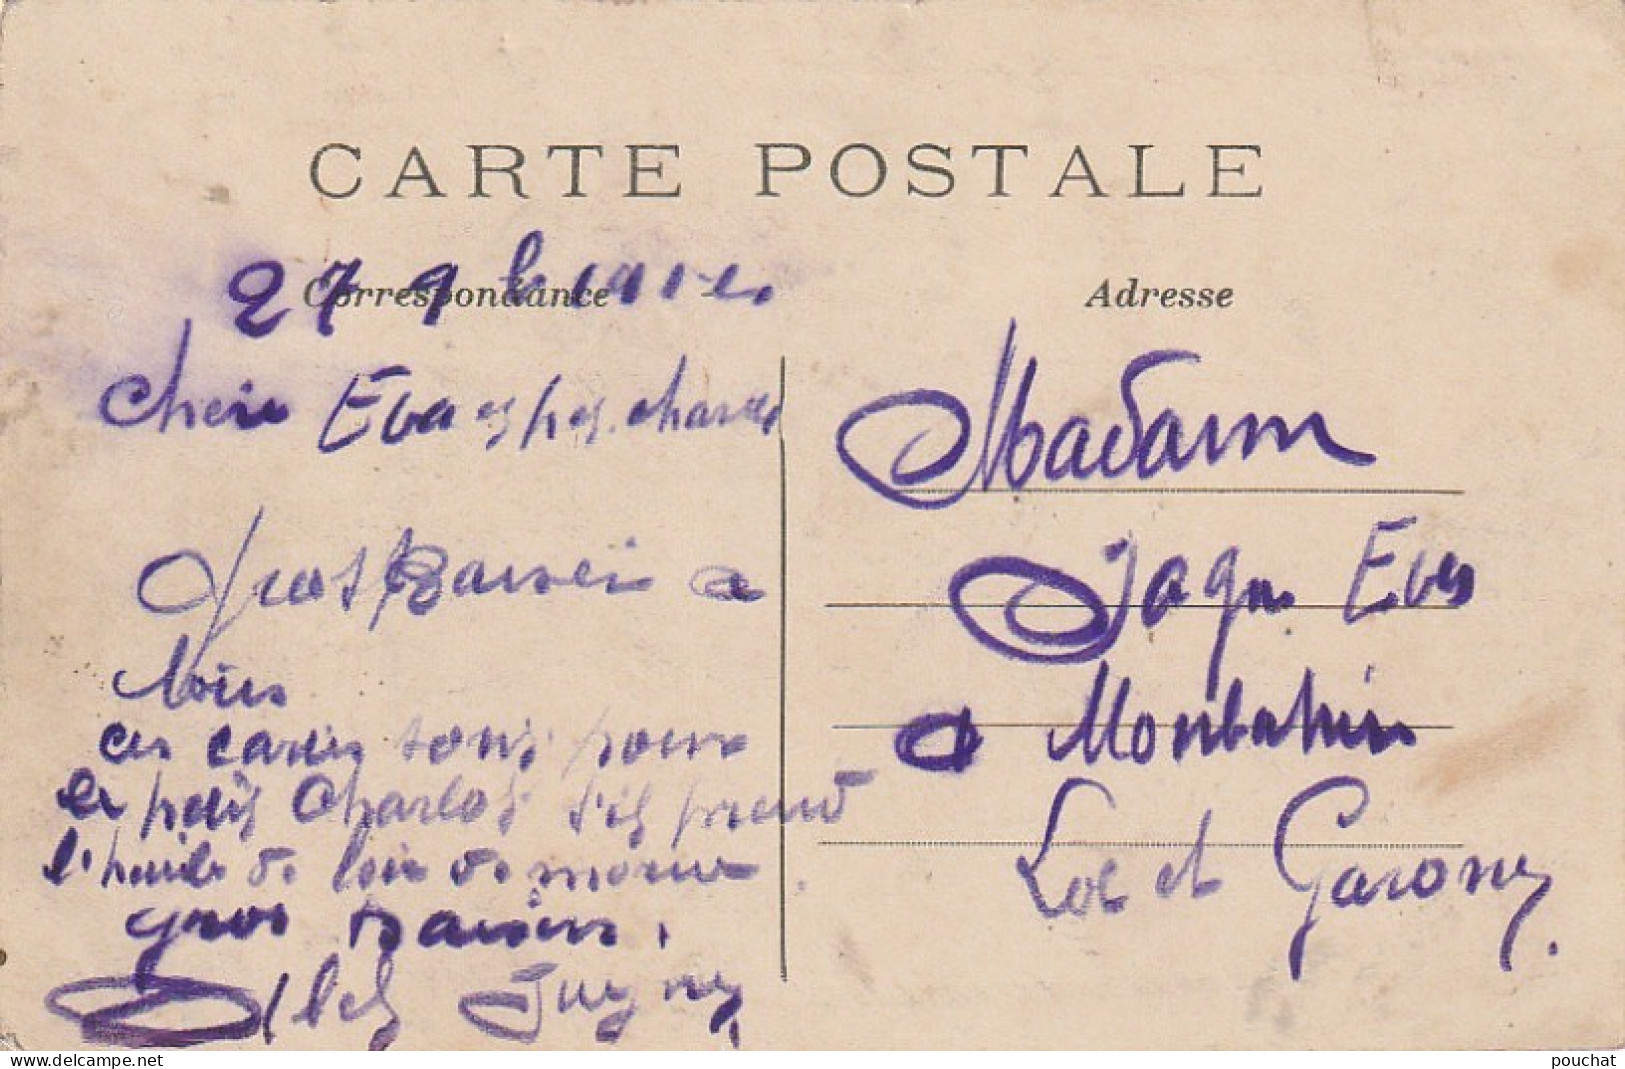 CARTE POSTALE
Correspondance
Adresse
27 9 1912
Chère Eva et petit Charles
gros Baiser a
tous
ces cartes sont pour
le petit Charlot s'il prend
l'huile de foie de morue
gros Baisers.
Madame
Jaque Eva
a Monbahus
Lot et Garonne.
www.delcampe.net
pouchat